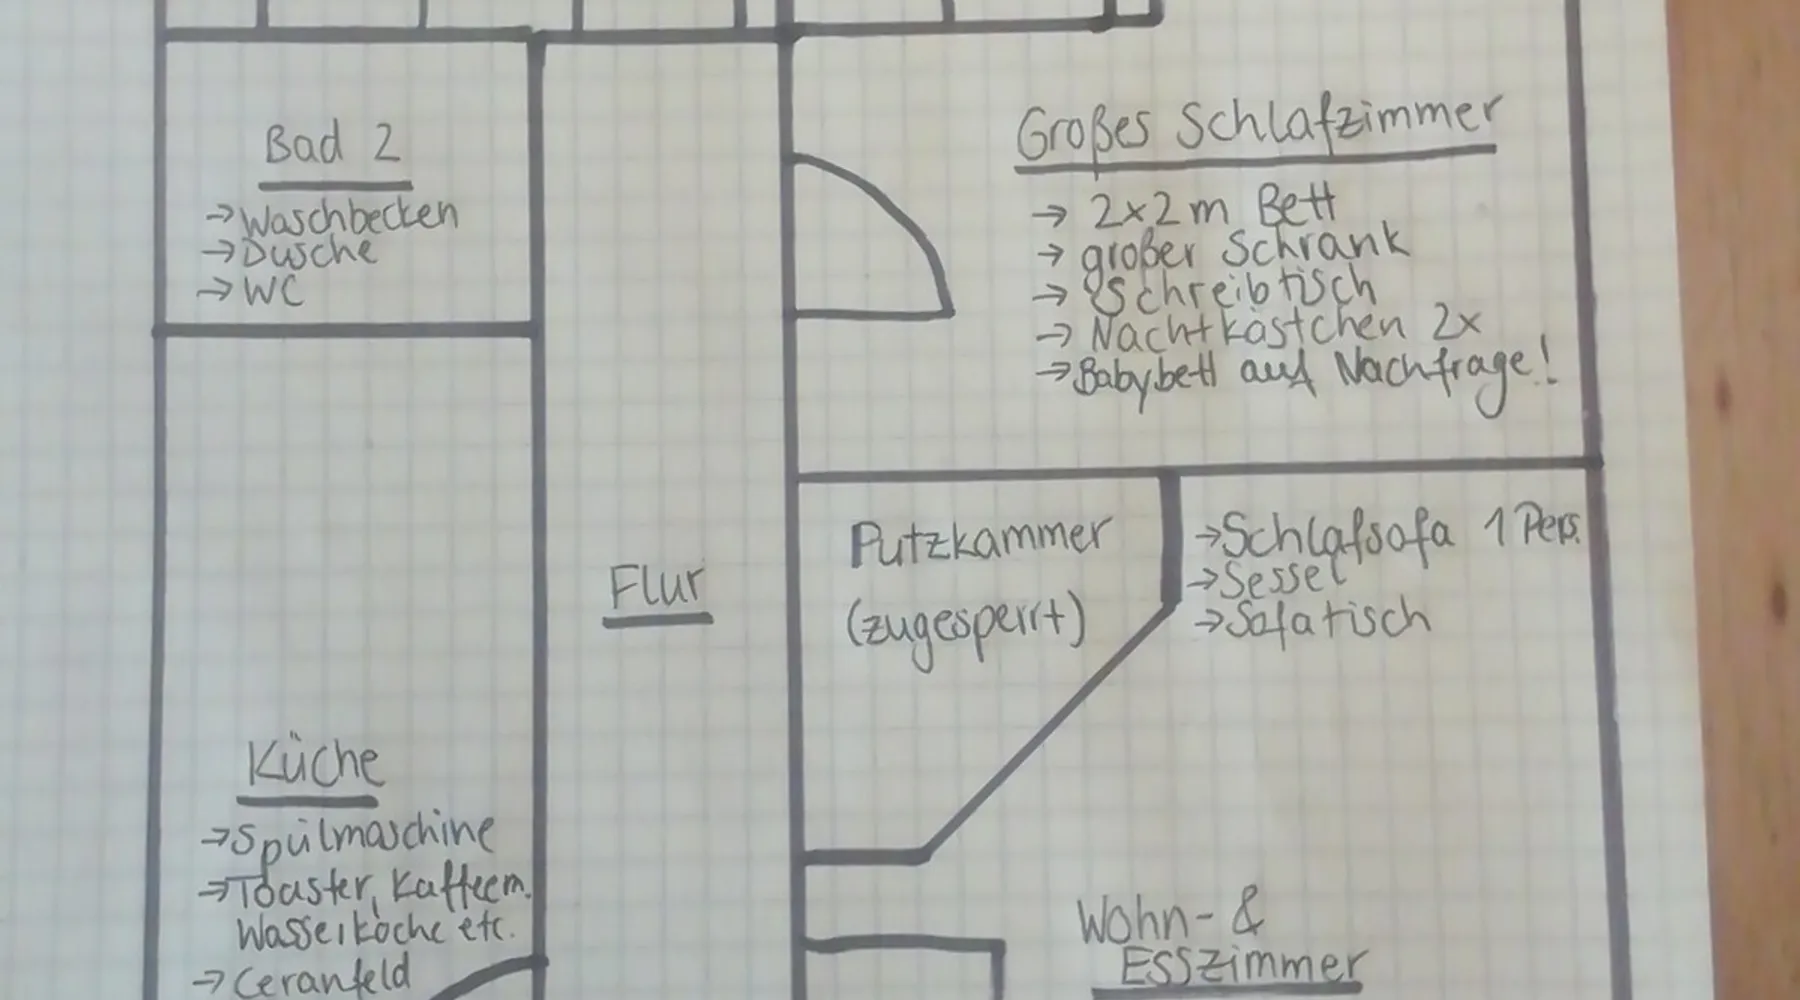 Bad 2
→ Waschbecken
→ Dusche
→ WC
Großes Schlafzimmer
→ 2x2m Bett
→ großer Schrank
→ Schreibtisch
→ Nachtkästchen 2x
→ Babybett auf Nachfrage!
Flur
Putzkammer
(zugesperrt)
→ Schlafsofa 1 Pers.
→ Sessel
→ Sofatisch
Küche
→ Spülmaschine
→ Toaster, Kaffeem.
Wasserkoche etc.
→ Ceranfeld
Wohn- &
Esszimmer